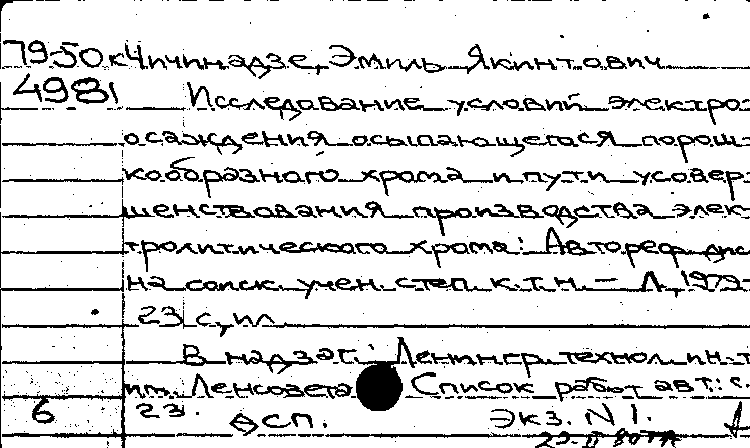 79-50к Чичинадзе, Эмиль Якинтович
4981 Исследование условий электро
осаждения осыпающегося порош-
кообразного хрома и пути усовер-
шенствования производства элек
тролитического хрома: Автореф дис
на соиск. учен. степ к.т.н. — Л., 1979
23 с, ил
В надзаг.: Ленингр. технол. ин-т
им. Ленсовета Список работ авт.: с.
6 23. Экз. N 1.